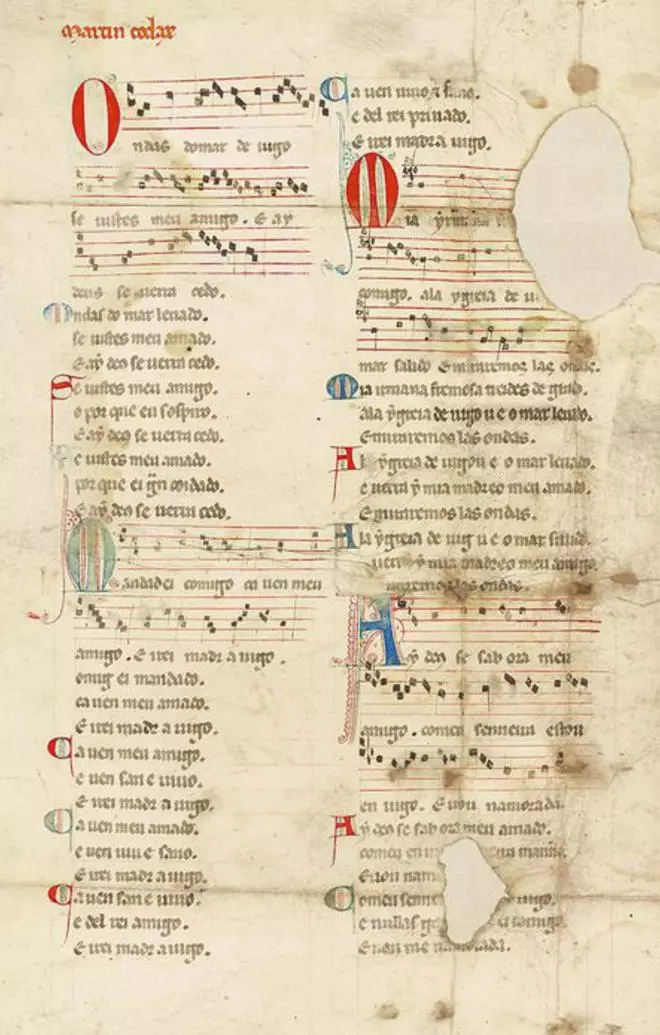 martin codax
Ondas do mar de uigo
se uistes meu amigo. E ay
deus se uerra cedo.
Ondas do mar leuado.
se uistes meu amado.
E ay deo se uerra cedo.
Se uistes meu amigo.
o por que eu sospiro.
E ay deo se uerra cedo.
Se uistes meu amado.
por que ei gñ coidado.
E ay deo se uerra cedo.
Mandad ei comigo ca uen meu
amigo. E irei madr a uigo.
comig ei mandado.
ca uen meu amado.
E irei madr a uigo.
Ca uen meu amigo.
e uen san e uiuo.
E irei madr a uigo.
Ca uen meu amado.
e uen uiu e sano.
E irei madr a uigo.
Ca uen san e uiuo.
e del rei amigo.
E irei madr a uigo.
Ca uen uiuo e sano.
e del rei priuado.
E irei madr a uigo.
Mia
comigo. ala ygreia de u
mar salido E miraremos las ondas.
Mia irmana fremosa treides de grado.
Ala ygreia de uigo u e o mar leuado.
E miraremos las ondas.
Ala ygreia de uigo u e o mar leuado.
e uerra y mia madre o meu amado.
E miraremos las ondas.
Ala ygreia de uig u e o mar salido.
uerra y mia madre o meu amigo.
miraremos las ondas.
Ay deo se sab ora meu
amigo. comeu senneira estou
en uigo. E uou namorada.
Ay deo se sab ora meu amado.
comeu en manno.
E uou nam
Comeu senne uigo.
e nullas comigo.
E uou me namorada.